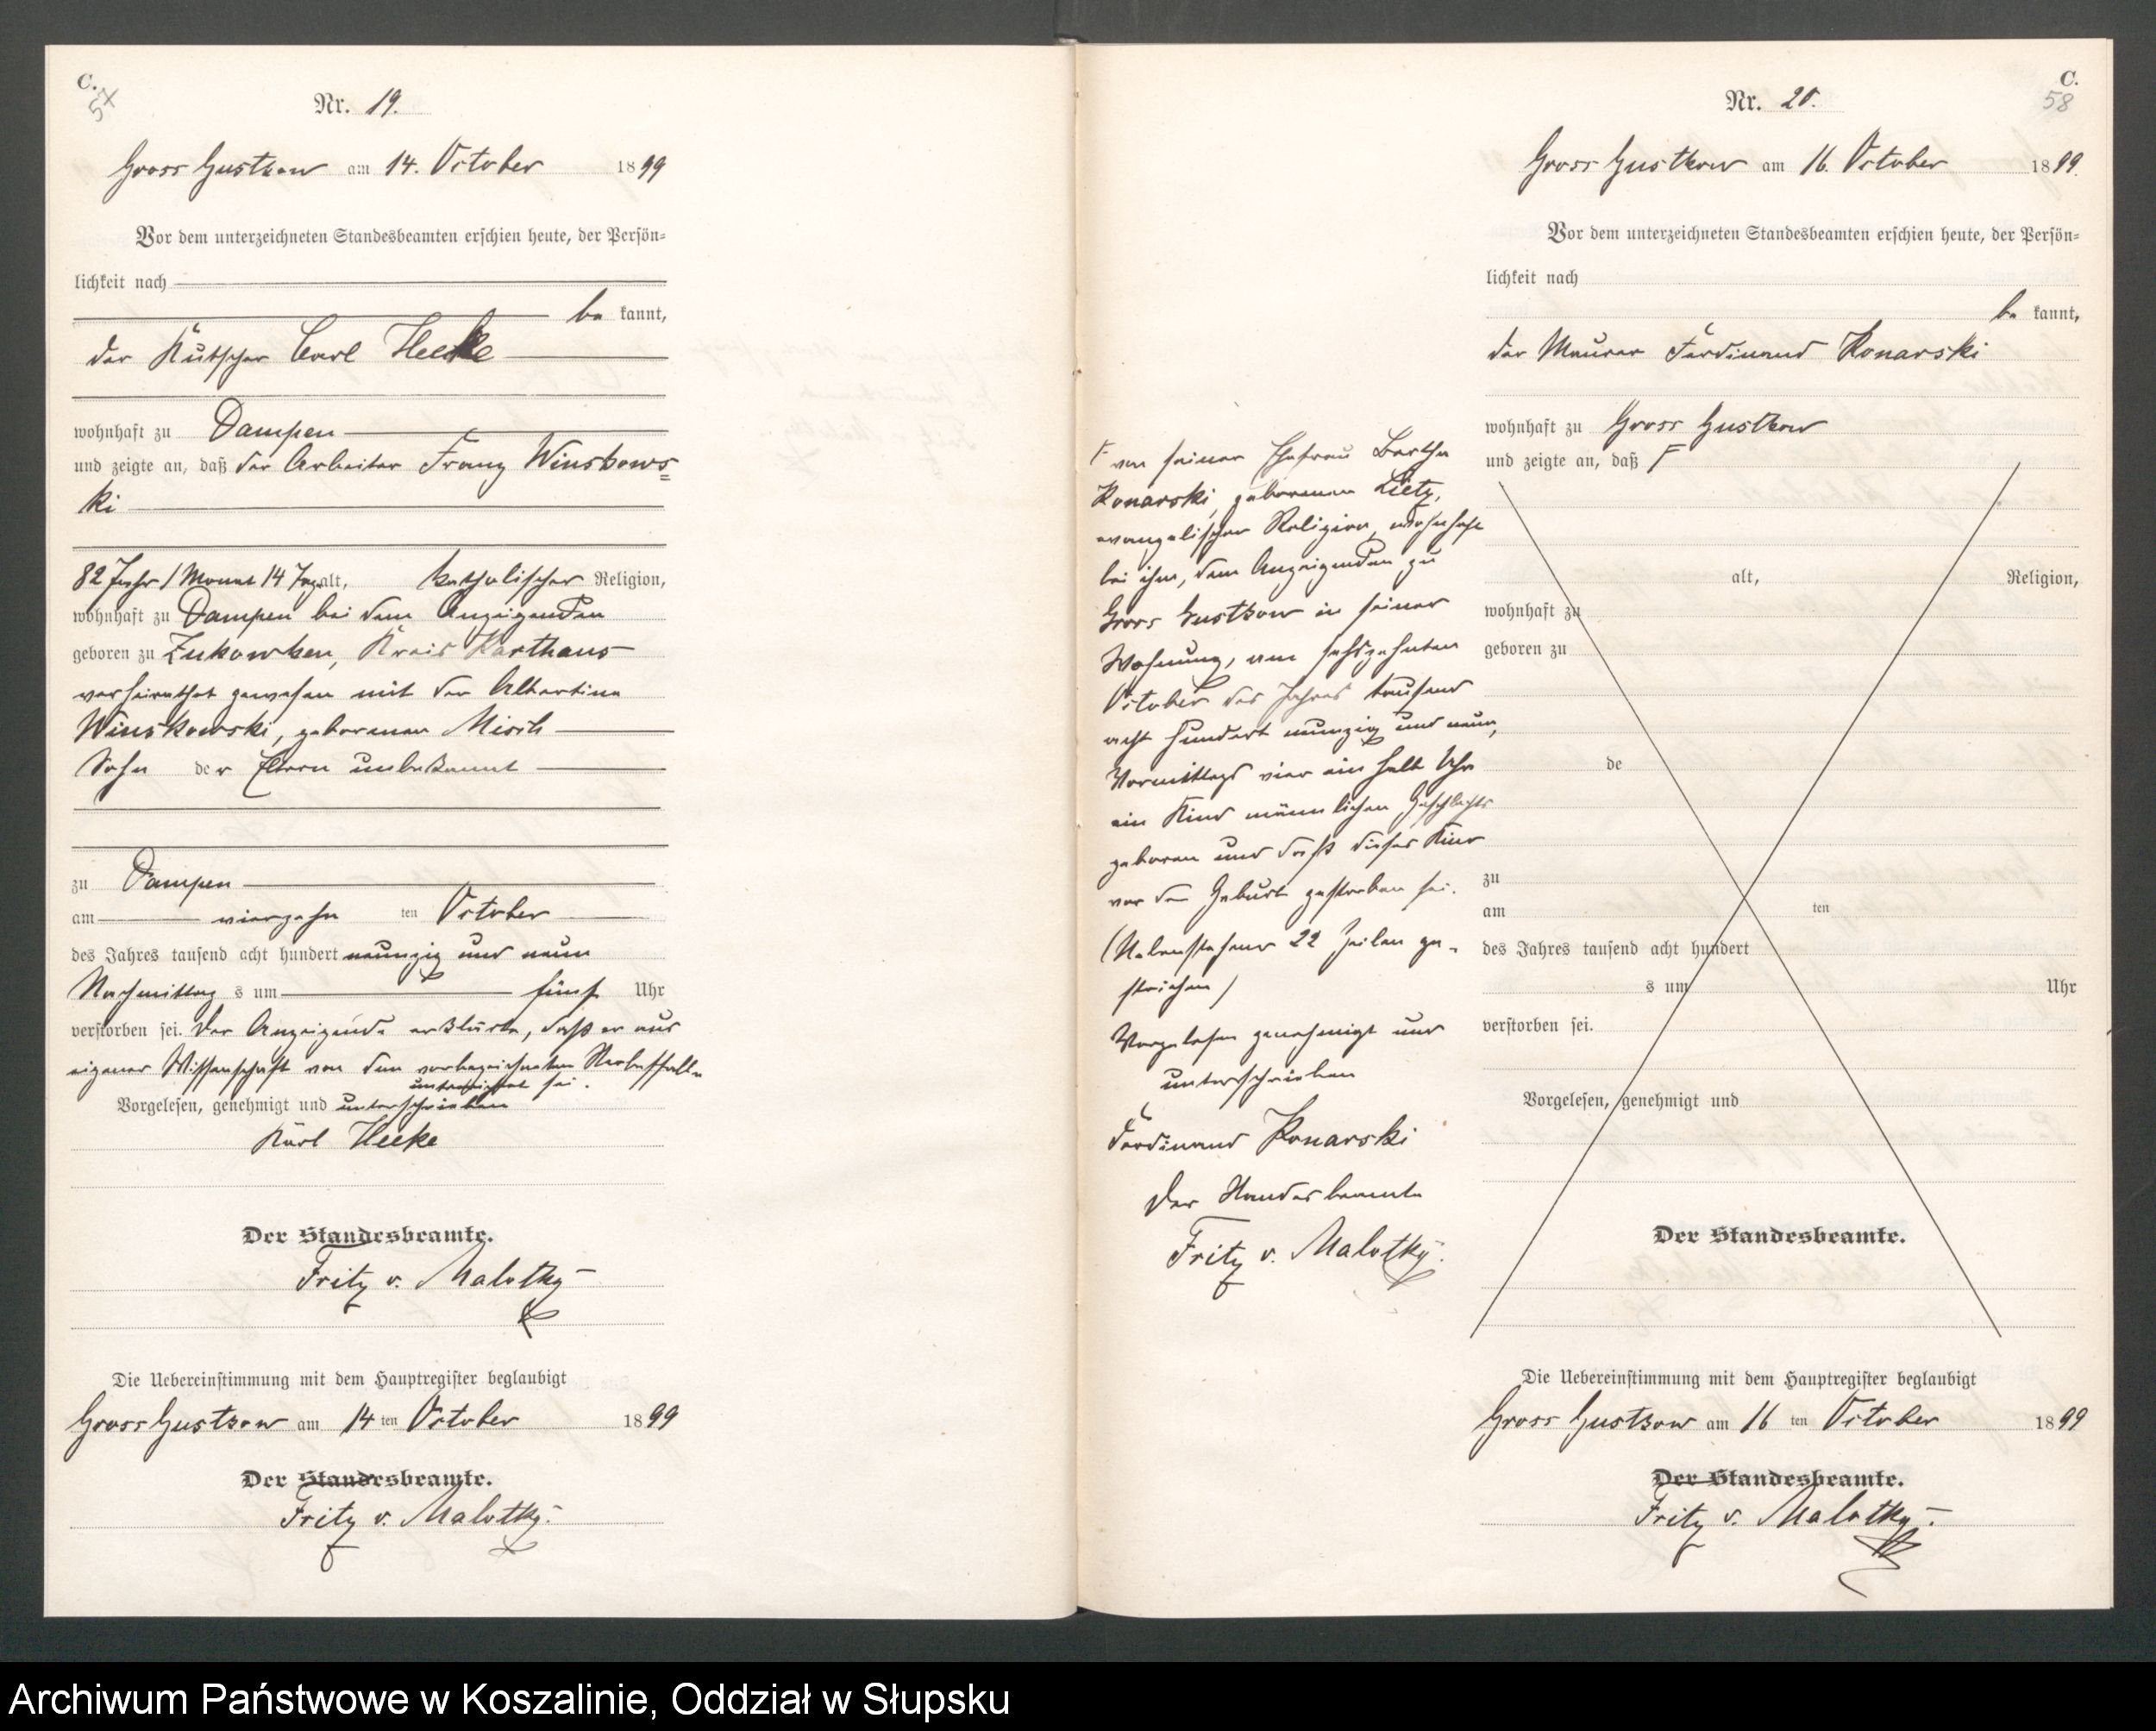 C.
57
Nr. 19.
Gross Gustkow am 14. October 1899
Vor dem unterzeichneten Standesbeamten erschien heute, der Persön-
lichkeit nach
be kannt,
der Kutscher Carl Heeke
wohnhaft zu Dampen
und zeigte an, daß der Arbeiter Franz Winskows=
ki
82 Jahr 1 Monat 14 Tag alt, katholischer Religion,
wohnhaft zu Dampen bei dem Anzeigenden
geboren zu Zukowken, Kreis Karthaus
verheirathet gewesen mit der Albertine
Winskowski, geborenen Misch
Sohn der Eltern unbekannt
zu Dampen
am vierzehn ten October
des Jahres tausend acht hundert neunzig und neun
Nachmittag s um fünf Uhr
verstorben sei. Der Anzeigende erklärte, daß er aus
eigener Wissenschaft von dem vorbezeichneten Sterbefalle
unterrichtet sei.
Vorgelesen, genehmigt und unterschrieben
Karl Heeke
Der Standesbeamte.
Fritz v. Malotky
Die Uebereinstimmung mit dem Hauptregister beglaubigt
Gross Gustkow am 14 ten October 1899
Der Standesbeamte.
Fritz v. Malotky.
C.
58
Nr. 20.
Gross Gustkow am 16. October 1899.
Vor dem unterzeichneten Standesbeamten erschien heute, der Persön-
lichkeit nach
be kannt,
der Maurer Ferdinand Konarski
wohnhaft zu Gross Gustkow
und zeigte an, daß F
alt, Religion,
wohnhaft zu
geboren zu
de
zu
am ten
des Jahres tausend acht hundert
s um Uhr
verstorben sei.
Vorgelesen, genehmigt und
Der Standesbeamte.
F von seiner Ehefrau Bertha
Konarski, geborenen Lietz,
evangelischer Religion, wohnhaft
bei ihm, dem Anzeigenden zu
Gross Gustkow in seiner
Wohnung, am sechszehnten
October des Jahres tausend
acht hundert neunzig und neun,
Vormittags vier ein halb Uhr
ein Kind männlichen Geschlechts
geboren und daß dieses Kind
vor der Geburt gestorben sei.
(Nebenstehend 22 Zeilen ge-
strichen)
Vorgelesen genehmigt und
unterschrieben
Ferdinand Konarski
Der Standesbeamte
Fritz v. Malotky.
Die Uebereinstimmung mit dem Hauptregister beglaubigt
Gross Gustkow am 16 ten October 1899
Der Standesbeamte.
Fritz v. Malotky.
Archiwum Państwowe w Koszalinie, Oddział w Słupsku